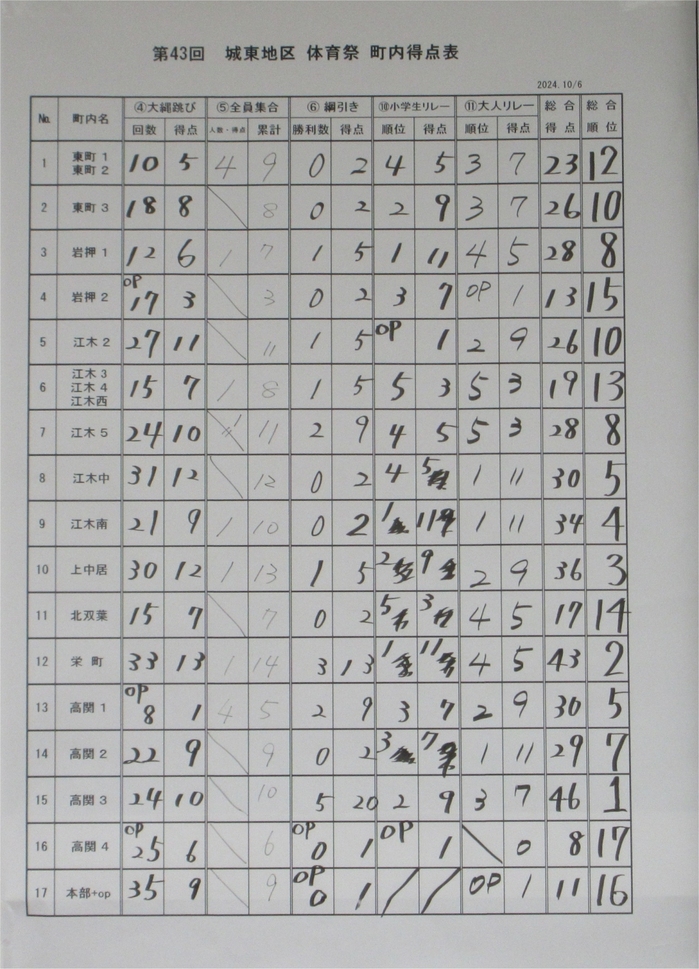 第43回 城東地区 体育祭 町内得点表
2024.10/6
№ 町内名 ④大縄跳び ⑤全員集合 ⑥綱引き ⑩小学生リレー ⑪大人リレー 総合得点 総合順位
回数 得点 人数・得点 累計 勝利数 得点 順位 得点 順位 得点
1 東町1 東町2 10 5 4 9 0 2 4 5 3 7 23 12
2 東町3 18 8 8 0 2 2 9 3 7 26 10
3 岩押1 12 6 1 7 1 5 1 11 4 5 28 8
4 岩押2 OP 17 3 3 0 2 3 7 OP 1 13 15
5 江木2 27 11 11 1 5 OP 1 2 9 26 10
6 江木3 江木4 江木西 15 7 1 8 1 5 5 3 5 3 19 13
7 江木5 24 10 11 2 9 4 5 5 3 28 8
8 江木中 31 12 12 0 2 4 5 1 11 30 5
9 江木南 21 9 1 10 0 2 1 11 1 11 34 4
10 上中居 30 12 1 13 1 5 2 9 2 9 36 3
11 北双葉 15 7 7 0 2 5 3 4 5 17 14
12 栄町 33 13 1 14 3 13 1 11 4 5 43 2
13 高関1 OP 8 1 4 5 2 9 3 7 2 9 30 5
14 高関2 22 9 9 0 2 3 7 1 11 29 7
15 高関3 24 10 10 5 20 2 9 3 7 46 1
16 高関4 OP 25 6 6 OP 0 1 OP 1 0 8 17
17 本部+op 35 9 9 OP 0 1 OP 1 11 16